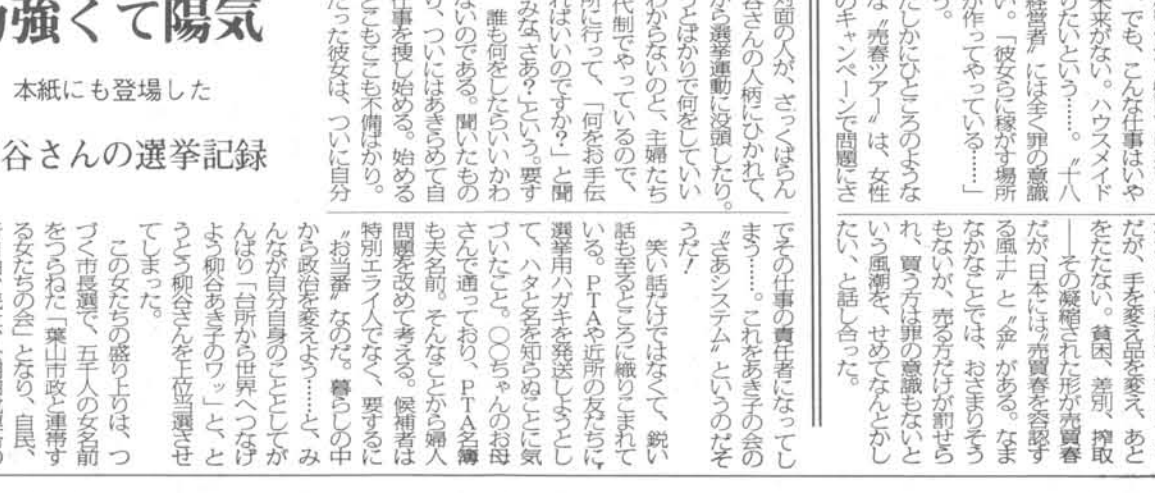 強くて陽気
本紙にも登場した
谷さんの選挙記録
でも、こんな仕事はいや
未来がない。ハウスメイド
りたいという……。〝十八
経営者〟には全く罪の意識
い。「彼女らに稼がす場所
が作ってやっている……」
う。
たしかにひところのような
な〝売春ツアー〟は、女性
のキャンペーンで問題にさ
だが、手を変え品を変え、あと
をたたない。貧困、差別、搾取
――その凝縮された形が売買春
だが、日本には〝売買春を容認す
る風土〟と〝金〟がある。なま
なかなことでは、おさまりそう
もないが、売る方だけが罰せら
れ、買う方は罪の意識もないと
いう風潮を、せめてなんとかし
たい、と話し合った。
対面の人が、ざっくばらん
谷さんの人柄にひかれて、
から選挙運動に没頭したり。
うとばかりで何をしてい
わからないのと、主婦たち
代制でやっているので、
所に行って、「何をお手伝
ればいいのですか?」と聞
みな〝さあ?〟という。要す
誰も何をしたらいいかわ
ないのである。聞いたもの
り、ついにはあきらめて自
仕事を捜し始める。始める
どこもここも不備ばかり。
たった彼女は、ついに自分
でその仕事の責任者になってし
まう……。これをあき子の会の
〝さあシステム〟というのだそ
うだ!
笑い話だけではなくて、鋭い
話も至るところに織りこまれて
いる。PTAや近所の友だちに、
選挙用ハガキを発送しようとし
て、ハタと名を知らぬことに気
づいたこと。〇〇ちゃんのお母
さんで通っており、PTA名簿
も夫名前。そんなことから婦人
問題を改めて考える。候補者は
特別エライ人でなく、要するに
〝お当番〟なのだ。暮らしの中
から政治を変えよう……と、み
んなが自分自身のこととしてが
んばり「台所から世界へつなげ
よう柳谷あき子のワッ」と、と
うとう柳谷さんを上位当選させ
てしまった。
この女たちの盛り上りは、つ
づく市長選で、五千人の女名前
をつらねた「葉山市政と連帯す
る女たちの会」となり、自民、